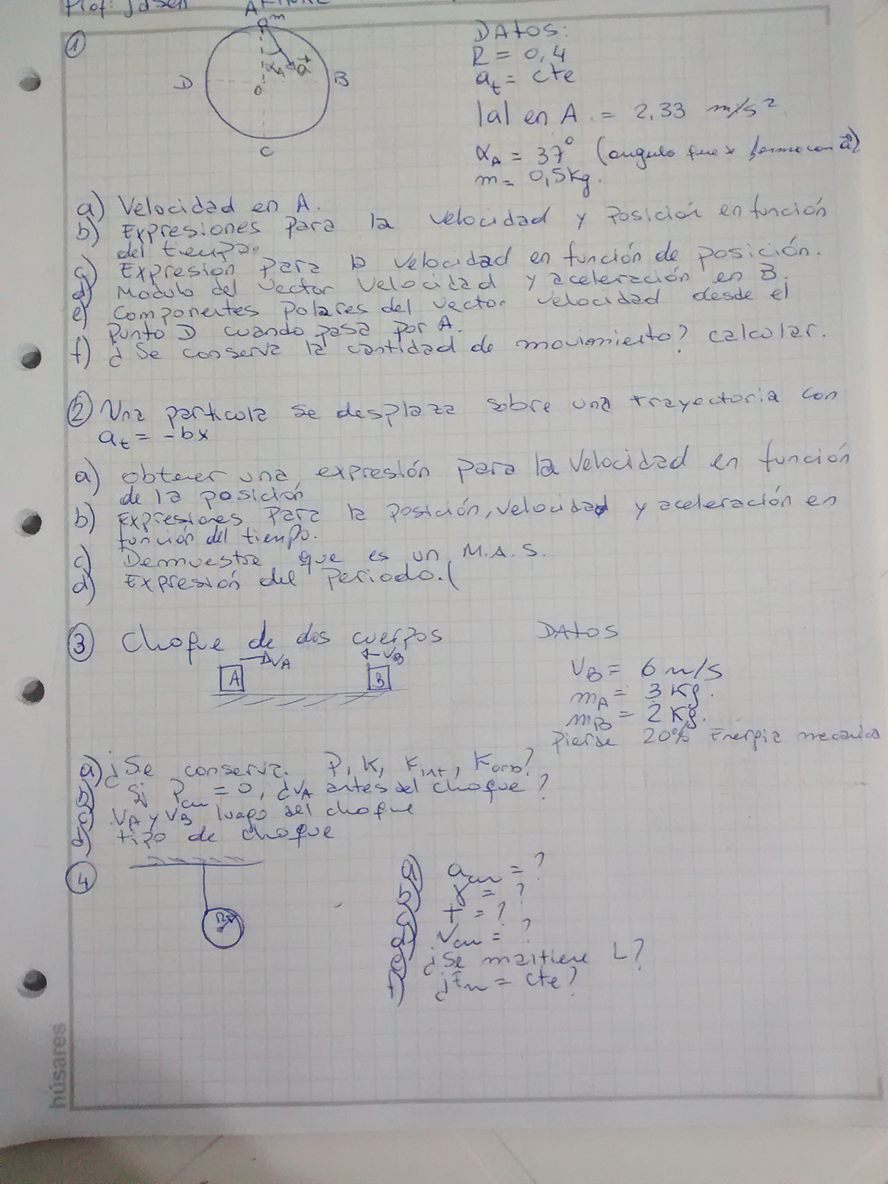 Prof: Jasen
①
A
m
D
B
αA
a
O
C
DATOS:
R = 0,4
at = cte
|a| en A. = 2,33 m/s²
αA = 37° (angulo que forma con a)
m = 0,5kg.
a) Velocidad en A.
b) Expresiones para la velocidad y posición en función
del tiempo.
c) Expresión para la velocidad en función de posición.
d) Modulo del vector velocidad y aceleración en B.
e) Componentes polares del vector velocidad desde el
punto D cuando pasa por A.
f) ¿Se conserva la cantidad de movimiento? calcular.
② Una particula se desplaza sobre una trayectoria con
at = -bx
a) obtener una expresión para la velocidad en función
de la posición
b) Expresiones para la posición, velocidad y aceleración en
función del tiempo.
c) Demuestre que es un M.A.S.
d) Expresión del Periodo.
③ Choque de dos cuerpos
VA
VB
A
B
DATOS
VB = 6 m/s
mA = 3 Kg.
mB = 2 Kg.
Pierde 20% Energia mecanica
a) ¿Se conserva P, K, Kint, Korb?
b) Si Pcm = 0, ¿VA antes del choque?
c) VA y VB luego del choque
d) tipo de choque
④
a) acm = ?
b) γ = ?
c) T = ?
d) Vcm = ?
e) ¿Se mantiene L?
f) ¿Em = cte?
húsares